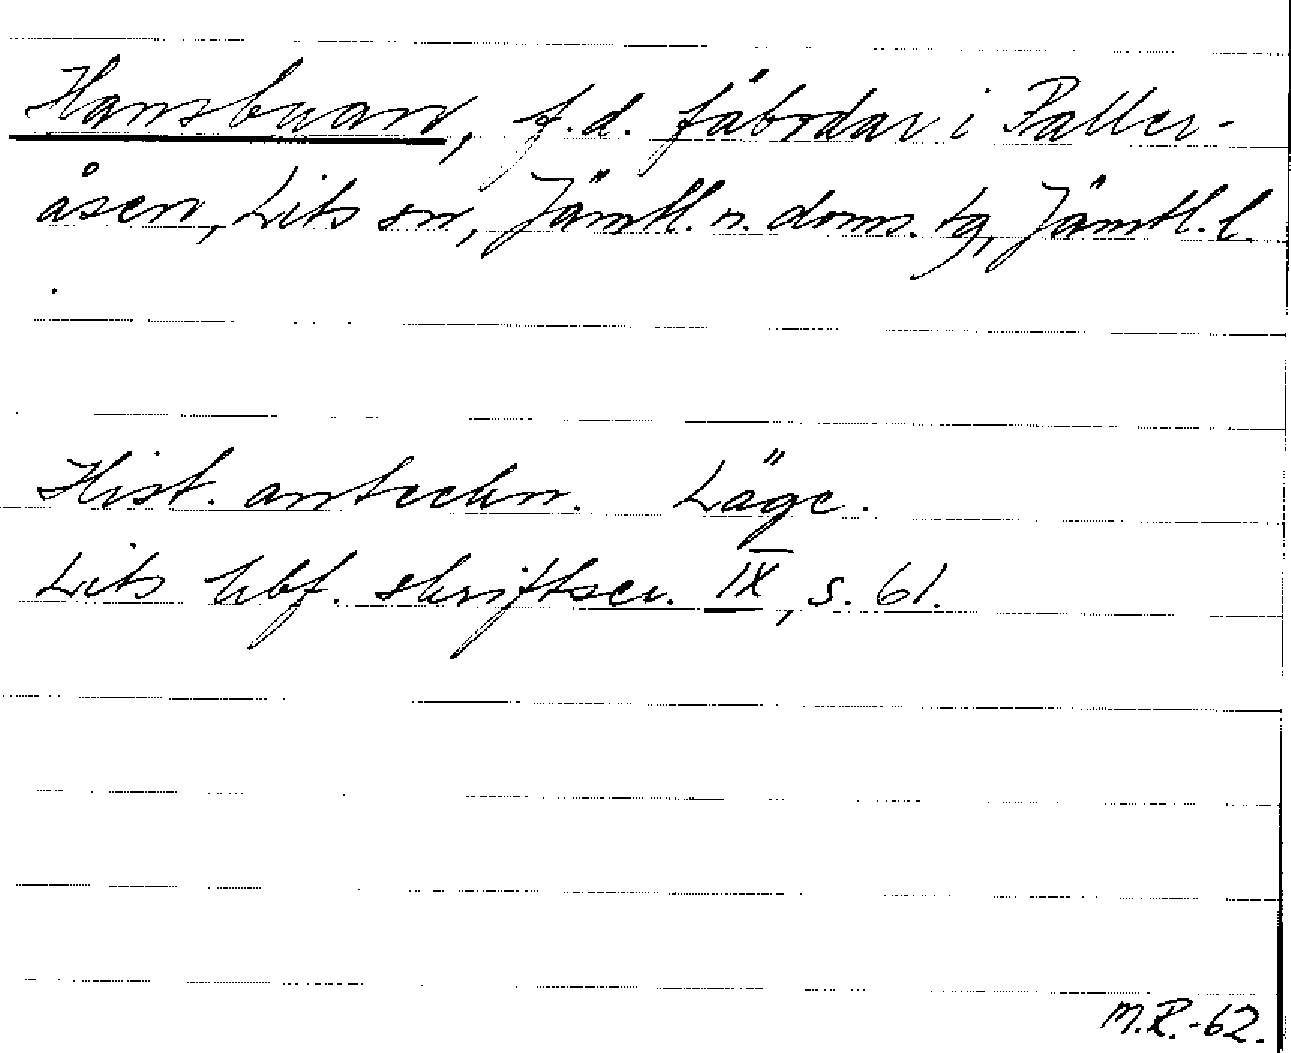 Hansbuan, f.d. fäbodar i Paller-
åsen, Lits sn, Jämtl. n. doms. tg, Jämtl. l.
Hist. anteckn. Läge.
Lits hbf. skriftser. IX, s. 61.
M.R.-62.